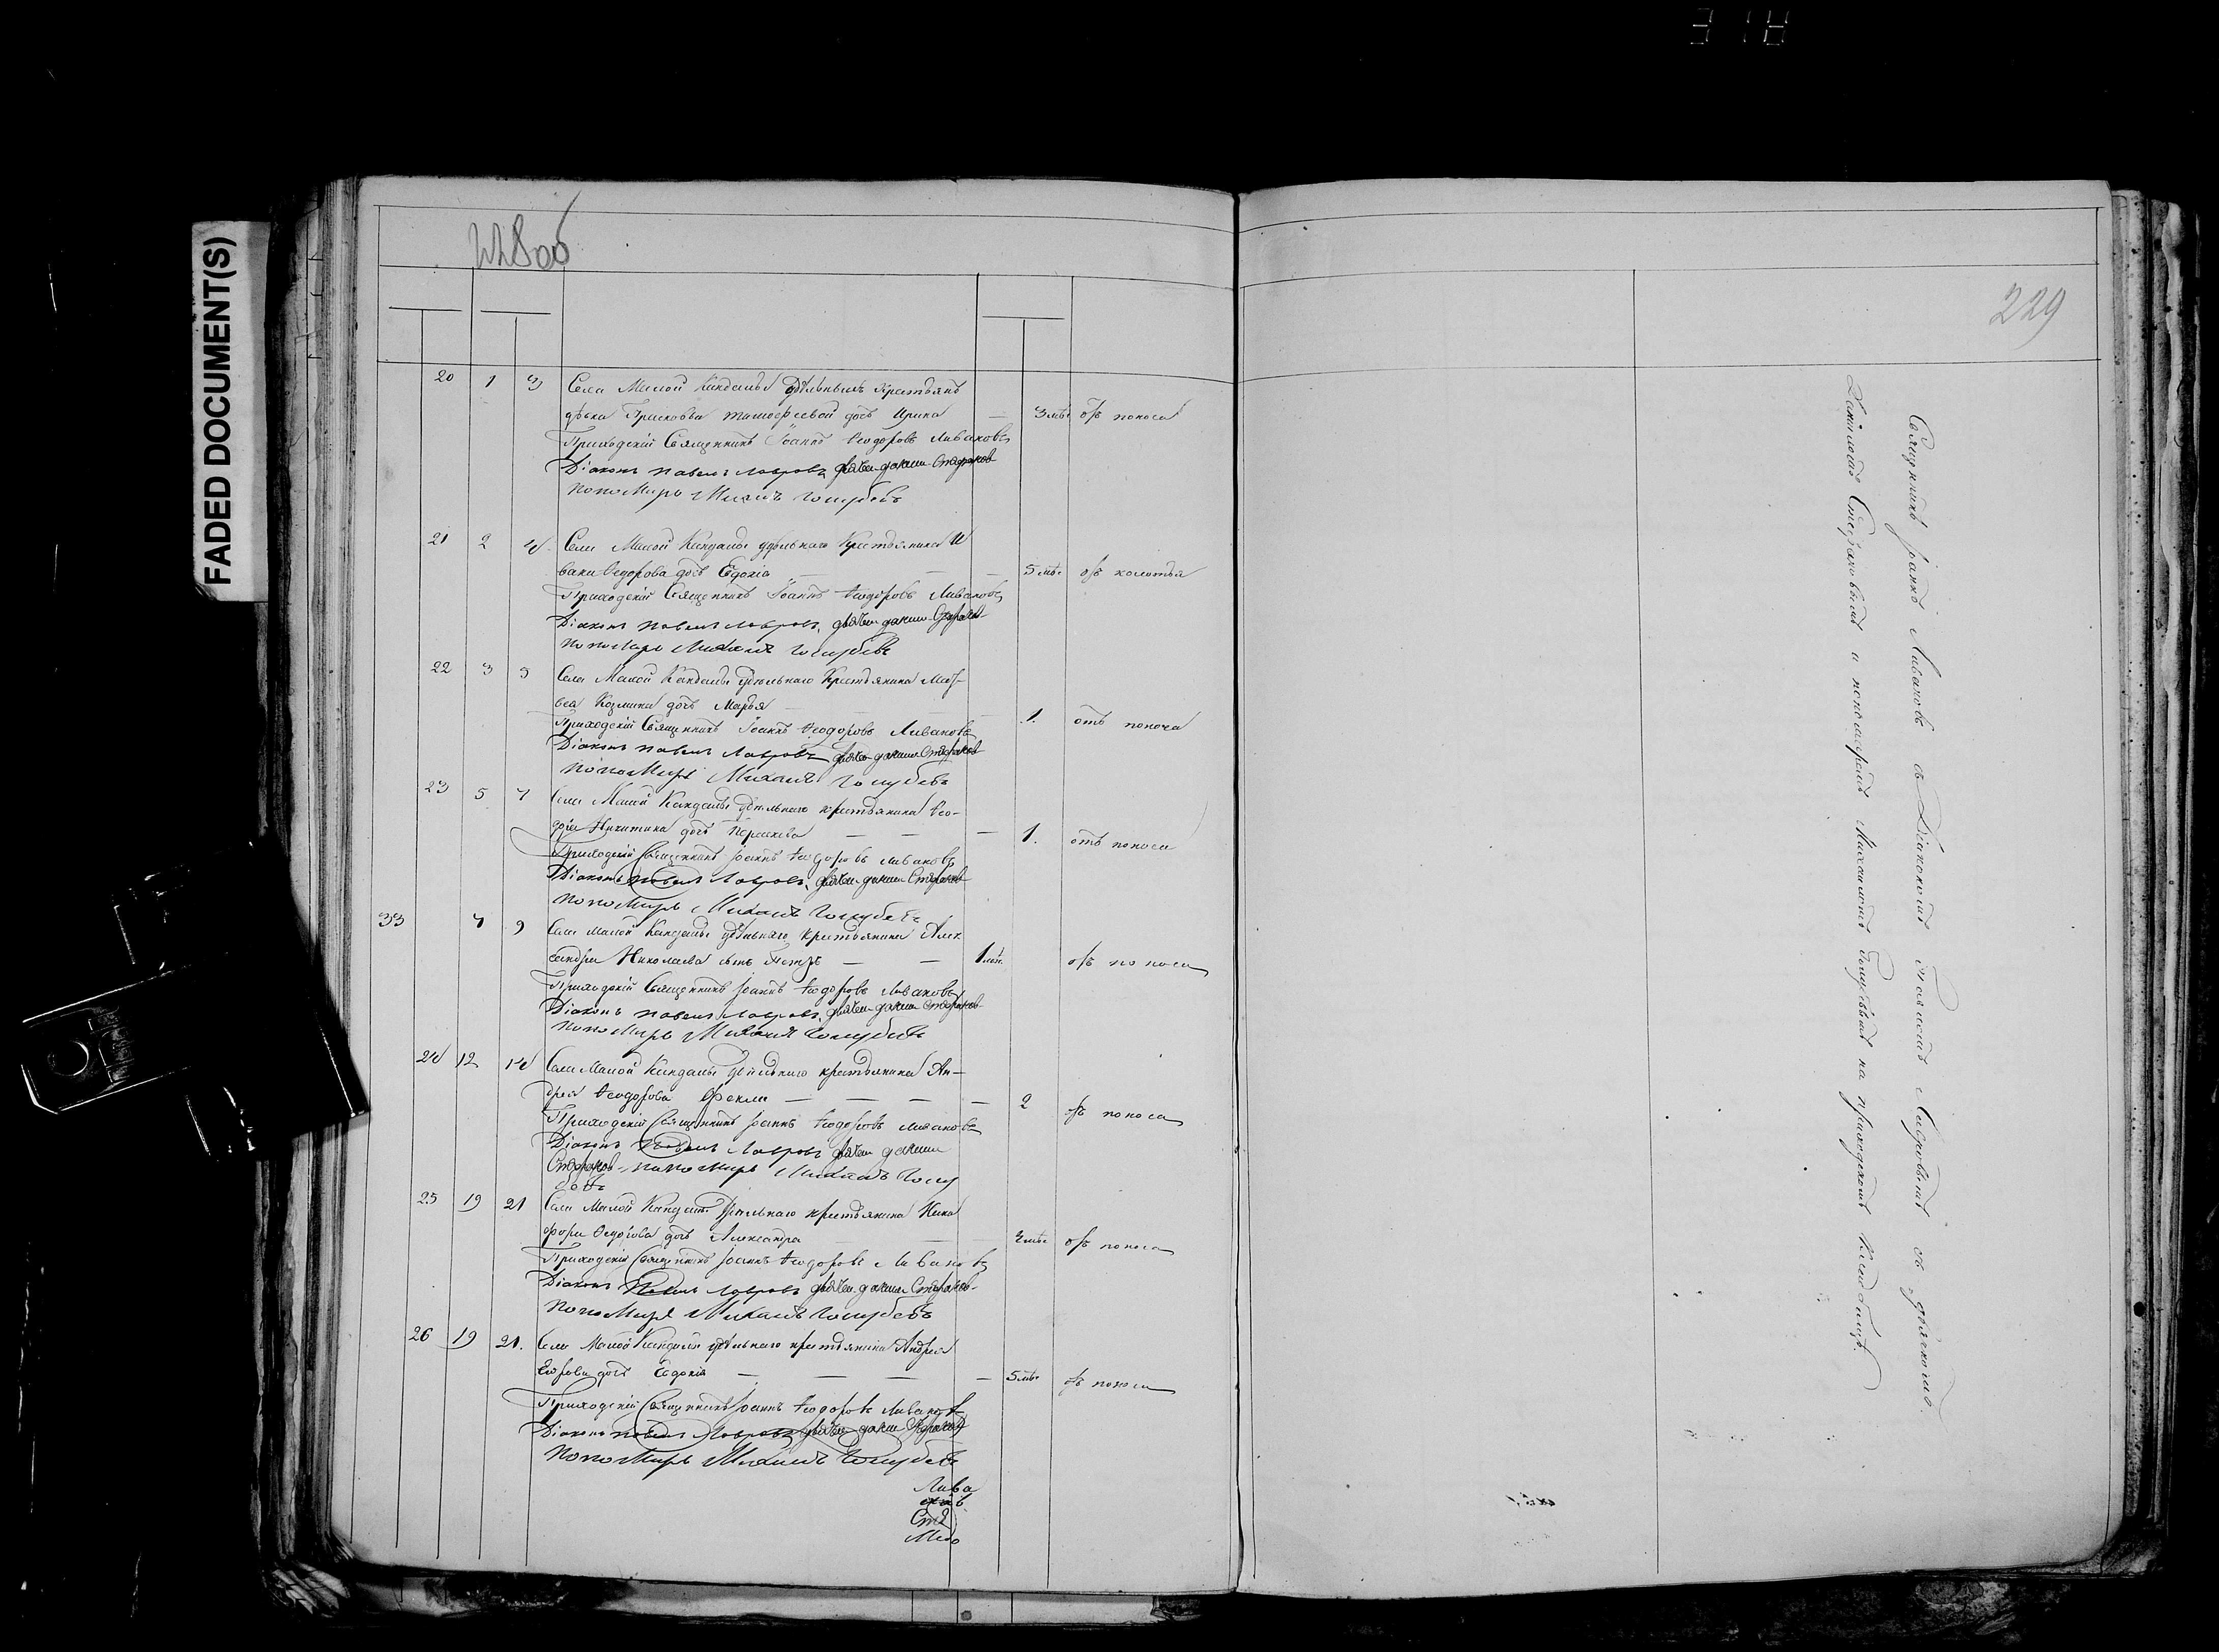 FADED DOCUMENT(S)
318
228об
229
20 1 3 Села Малой Кандалы удѣльныхъ крестьянъ
дѣвки Прасковьи Тимофеевой дочь Ирина — 3 мѣс отъ поноса
Приходскій Священникъ Іоаннъ Ѳеодоровъ Ливановъ
Діаконъ Павелъ Лавровъ дьячекъ Стефановъ
Пономарь Михаилъ Голубевъ
21 2 4 Села Малой Кандалы удѣльнаго крестьянина И
вана Ѳедорова дочь Евдокія — 5 мѣс отъ колотья
Приходскій Священникъ Іоаннъ Ѳеодоровъ Ливановъ
Діаконъ Павелъ Лавровъ, дьячекъ Стефановъ
Пономарь Михаилъ Голубевъ
22 3 5 Села Малой Кандалы удѣльнаго крестьянина Мат-
вея Козмина дочь Марья 1. отъ поноса
Приходскій Священникъ Іоаннъ Ѳеодоровъ Ливановъ
Діаконъ Павелъ Лавровъ дьячекъ Стефановъ
Пономарь Михаилъ Голубевъ
23 5 7 Села Малой Кандалы удѣльнаго крестьянина Ѳео-
дора Никитина дочь — — — 1. отъ поноса
Приходскій Священникъ Іоаннъ Ѳеодоровъ Ливановъ
Діаконъ Павелъ Лавровъ, дьячекъ Стефановъ
Пономарь Михаилъ Голубевъ
33 7 9 Села Малой Кандалы удѣльнаго крестьянина Алек
сандра Николаева сынъ Петръ — — 1 отъ поноса
Приходскій Священникъ Іоаннъ Ѳеодоровъ Ливановъ
Діаконъ Павелъ Лавровъ, дьячекъ Стефановъ
Пономарь Михаилъ Голубевъ
24 12 14 Села Малой Кандалы удѣльнаго крестьянина Ан-
дрея Ѳеодорова Ѳекла — — — — 2 отъ поноса
Приходскій Священникъ Іоаннъ Ѳеодоровъ Ливановъ
Діаконъ Павелъ Лавровъ дьячекъ
Стефановъ пономарь Михаилъ Голу
бевъ
25 19 21 Села Малой Кандалы удѣльнаго крестьянина Ники
фора Ѳедорова дочь Александра мѣс отъ поноса
Приходскій Священникъ Іоаннъ Ѳеодоровъ Ливановъ
Діаконъ Павелъ Лавровъ дьячекъ Стефановъ
Пономарь Михаилъ Голубевъ
26 19 21. Села Малой Кандалы удѣльнаго крестьянина Андрея
дочь Евдокія — — — — 5 мѣс отъ поноса
Приходскій Священникъ Іоаннъ Ѳеодоровъ Ливановъ
Діаконъ Павелъ Лавровъ дьячекъ Стефановъ
Пономарь Михаилъ Голубевъ
Лива
Священникъ Іоаннъ Ливановъ съ Діакономъ Павломъ Лавровымъ съ дьячкомъ
Стефановымъ и пономаремъ Михаиломъ Голубевымъ на приходскомъ кладбищѣ.